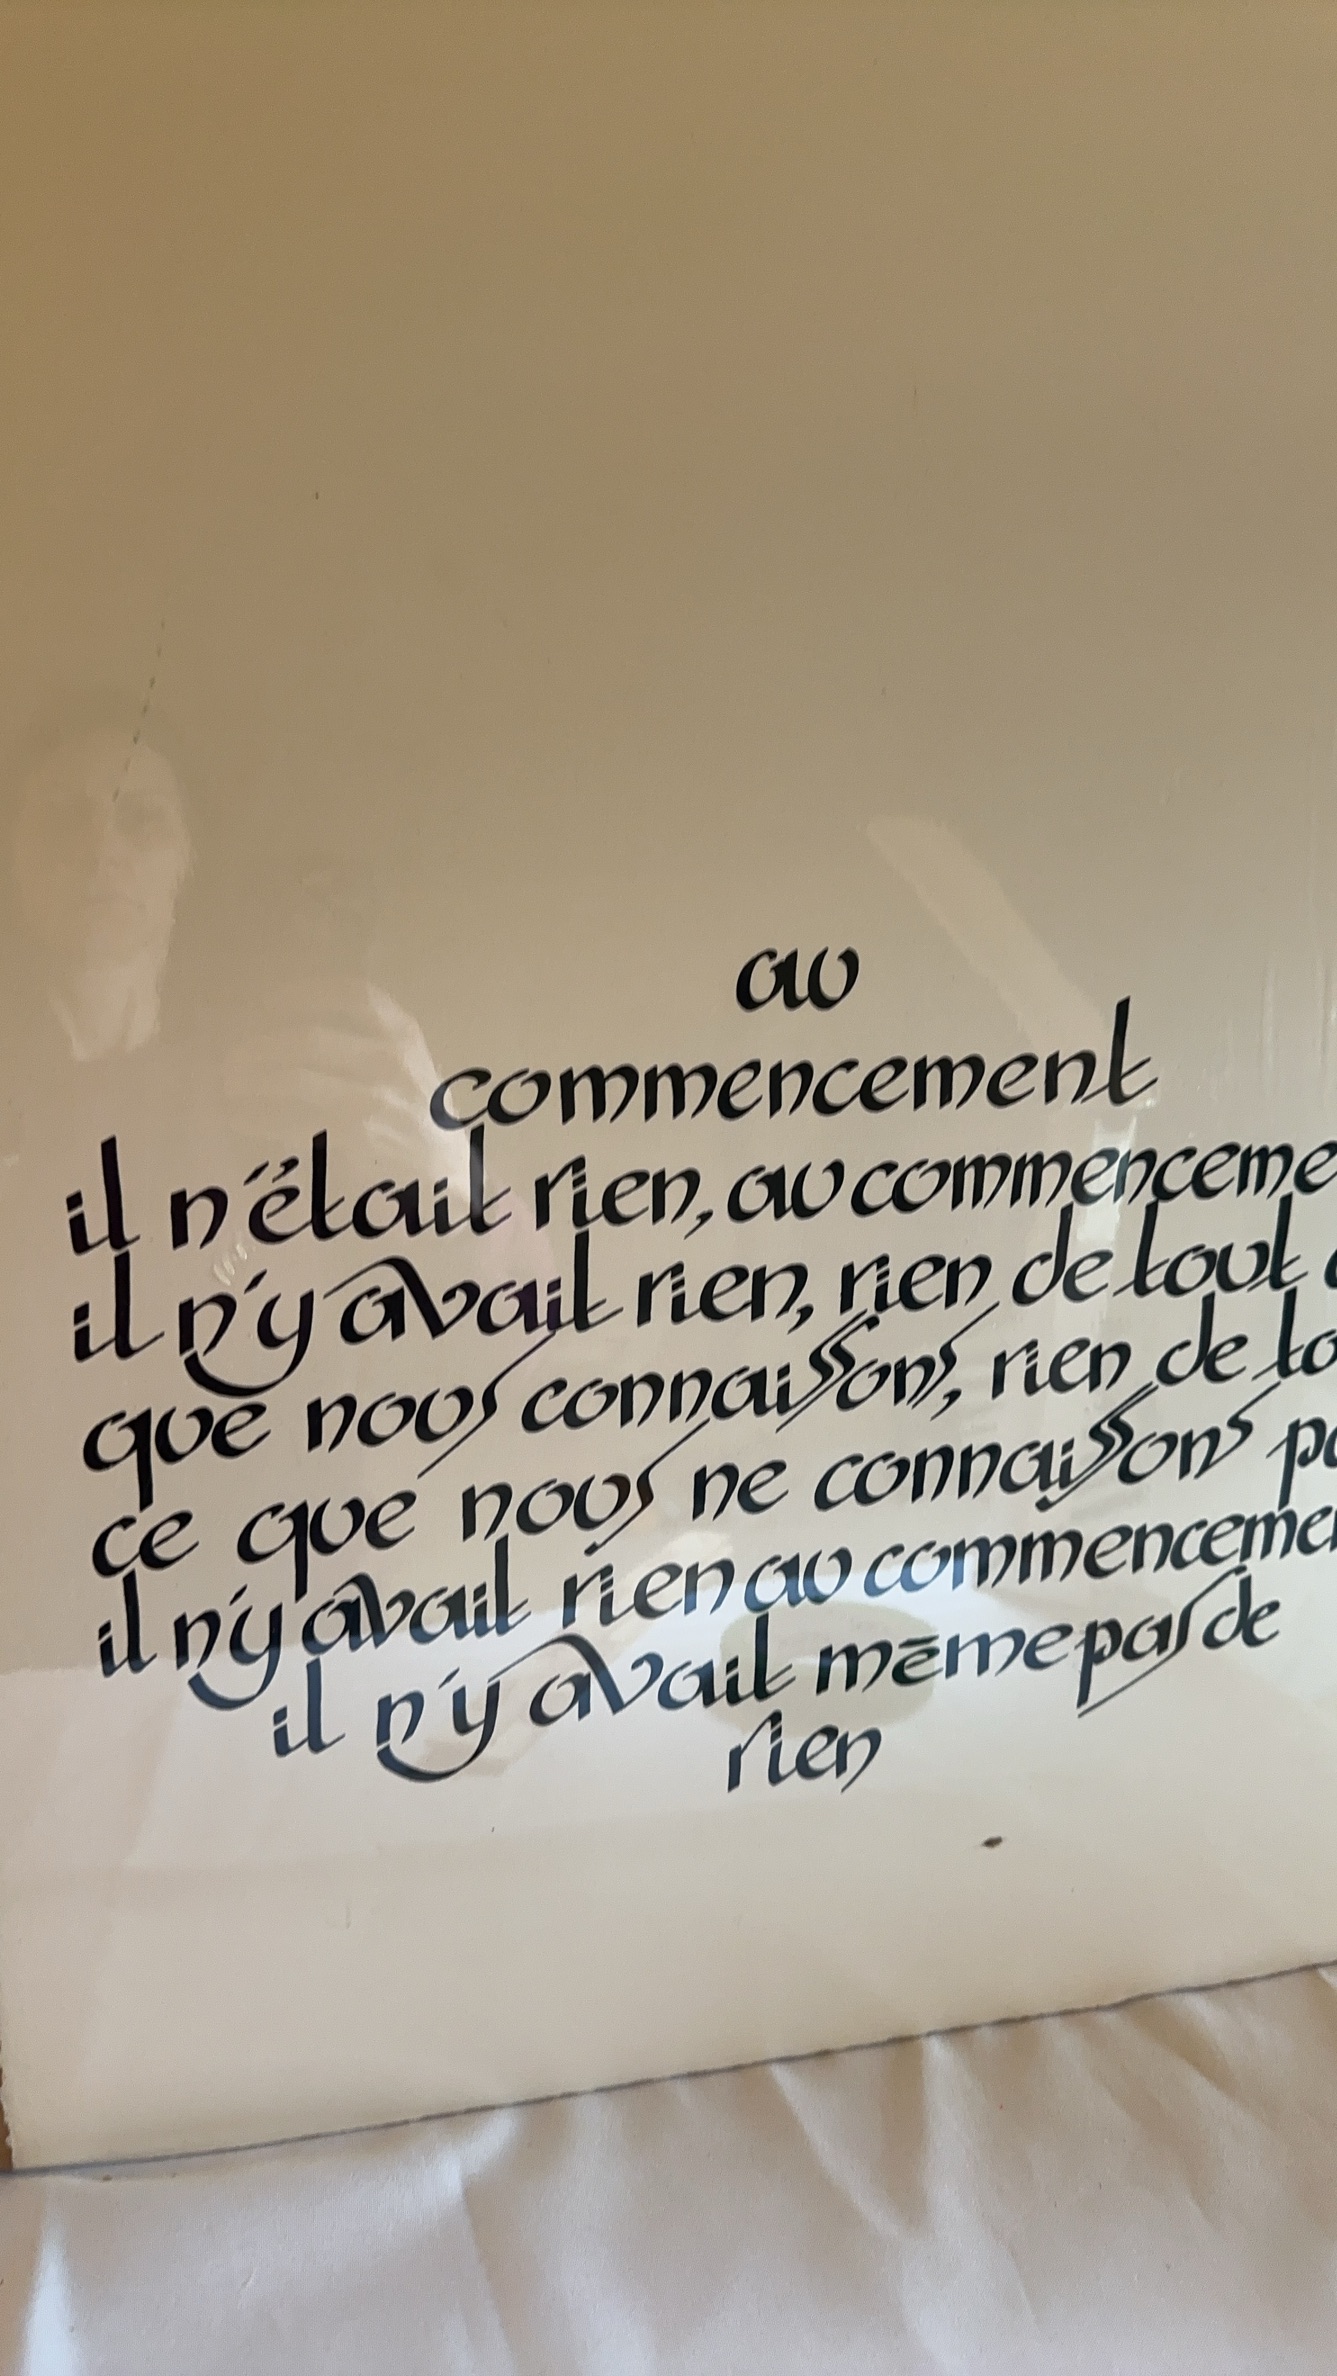 au
commencement
il n'était rien, au commenceme
il n'y avait rien, rien de tout
que nous connaissons, rien de to
ce que nous ne connaissons pa
il n'y avait rien au commenceme
il n'y avait même pas de
rien